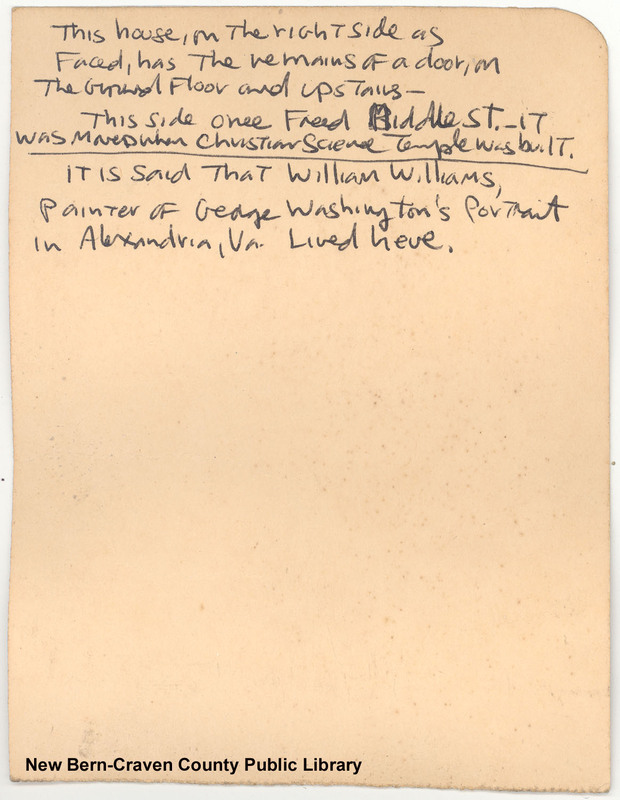 This house, on the right side as
Faced, has the remains of a door, on
the Ground Floor and upstairs —
This side once Faced Middle St. - it
was moved when Christian Science Temple was built.
it is said that William Williams,
painter of George Washington's Portrait
in Alexandria, Va. Lived here.
New Bern-Craven County Public Library